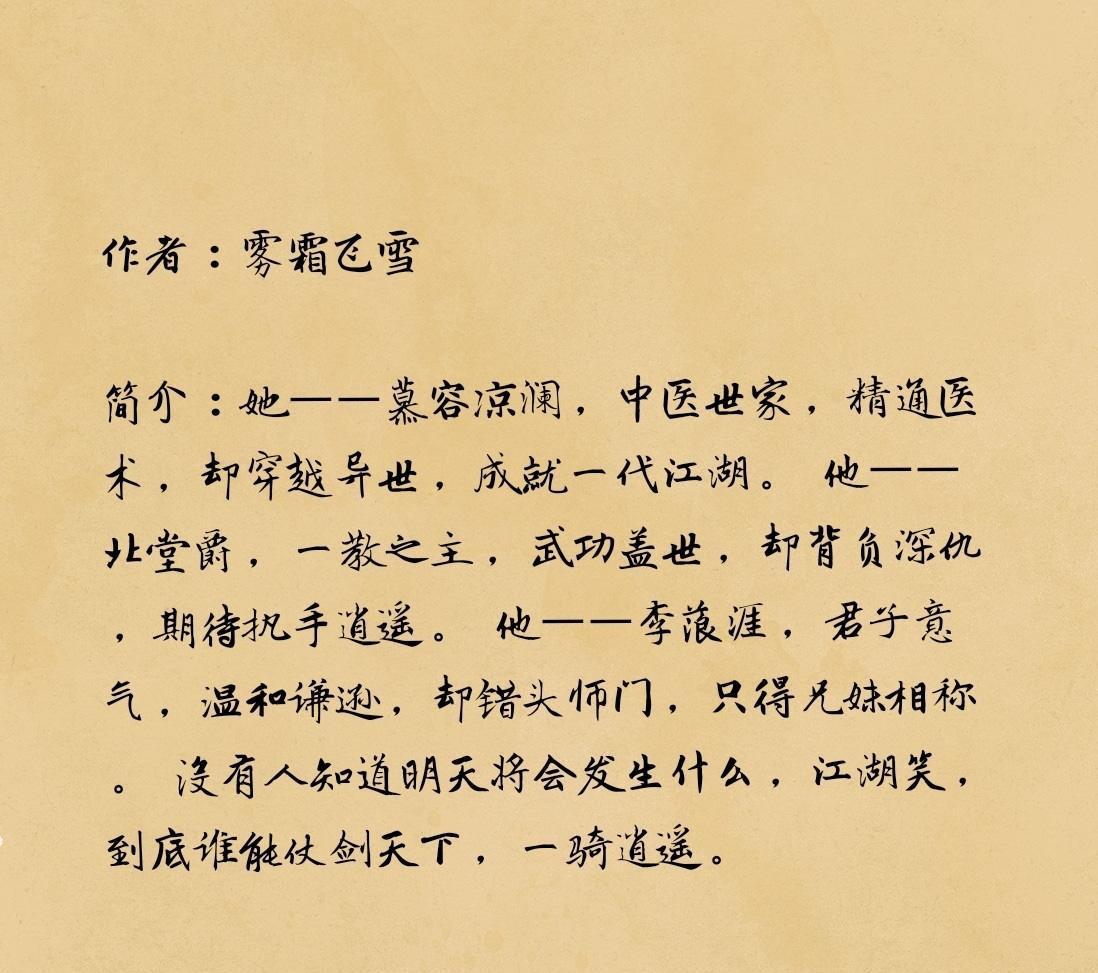 作者：雾霜飞雪
简介：她——慕容凉澜，中医世家，精通医
术，却穿越异世，成就一代江湖。 他——
北堂爵，一教之主，武功盖世，却背负深仇
，期待执手逍遥。 他——李蒗涯，君子意
气，温和谦逊，却错头师门，只得兄妹相称
。 没有人知道明天将会发生什么，江湖笑，
到底谁能仗剑天下，一骑逍遥。